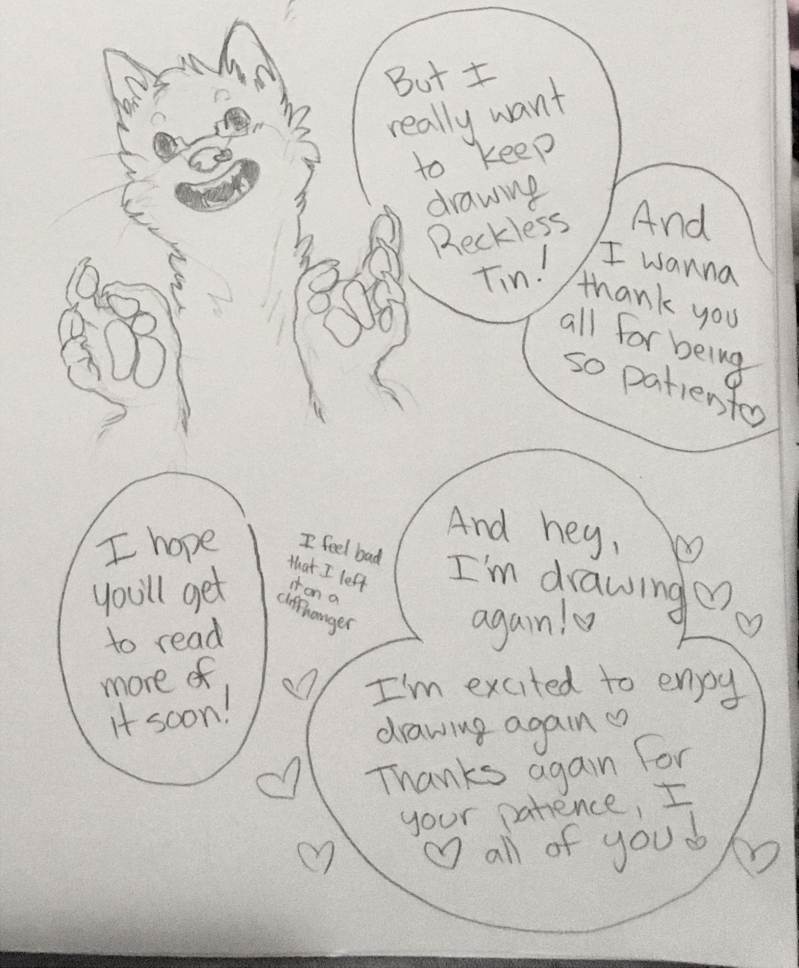 But I
really want
to keep
drawing
Reckless
Tin!
And
I wanna
thank you
all for being
so patient♡
I hope
you'll get
to read
more of
it soon!
I feel bad
that I left
it on a
cliffhanger
And hey,
I'm drawing
again!♡
I'm excited to enjoy
drawing again ♡
Thanks again for
your patience, I
♡ all of you!